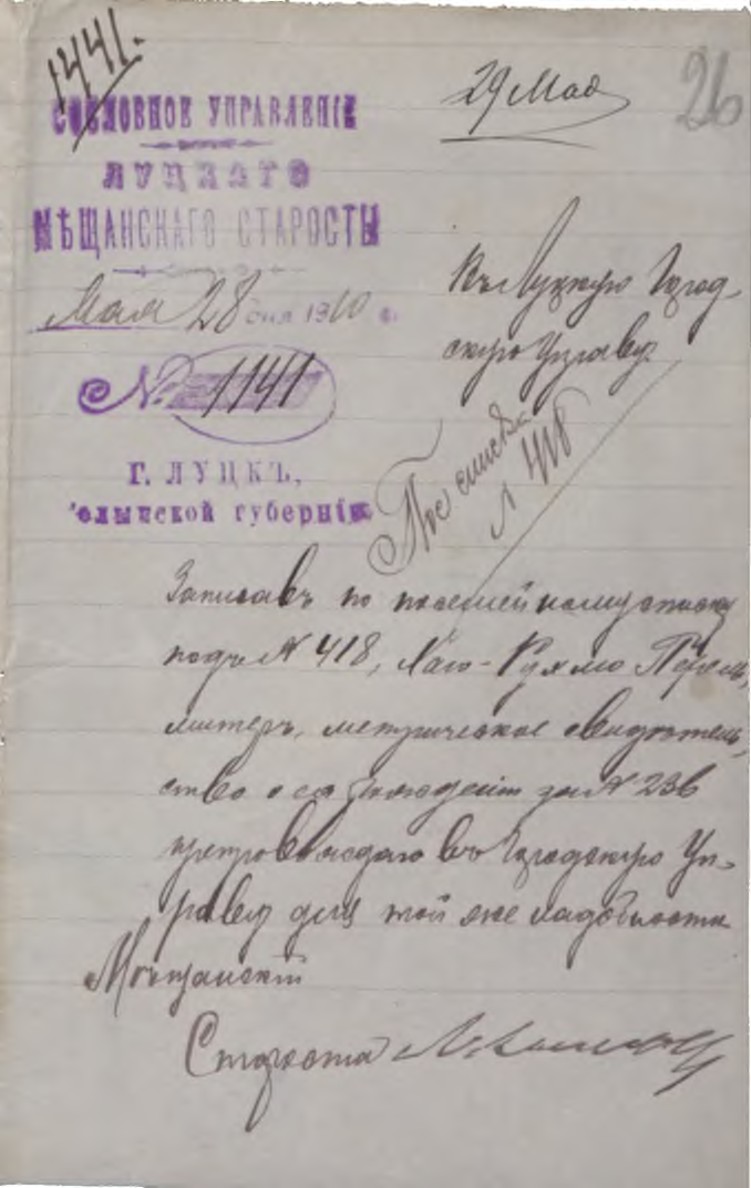 1441.
29 Мая
26
СОСЛОВНОЕ УПРАВЛЕНІЕ
ЛУЦКАГО
МѢЩАНСКАГО СТАРОСТЫ
Мая 28 дня 1910 г.
№ 1141
Г. ЛУЦКЪ,
Волынской губерніи
Въ Луцкую Город-
скую Управу.
№ 418
Записавъ по посемейному списку
подъ № 418, Хаю-Рухлю Перель,
метрическое свидѣтель,
ство о ея рожденіи за № 236
препровождаю въ Городскую Уп-
раву для той же надобности
Мѣщанскій
Староста